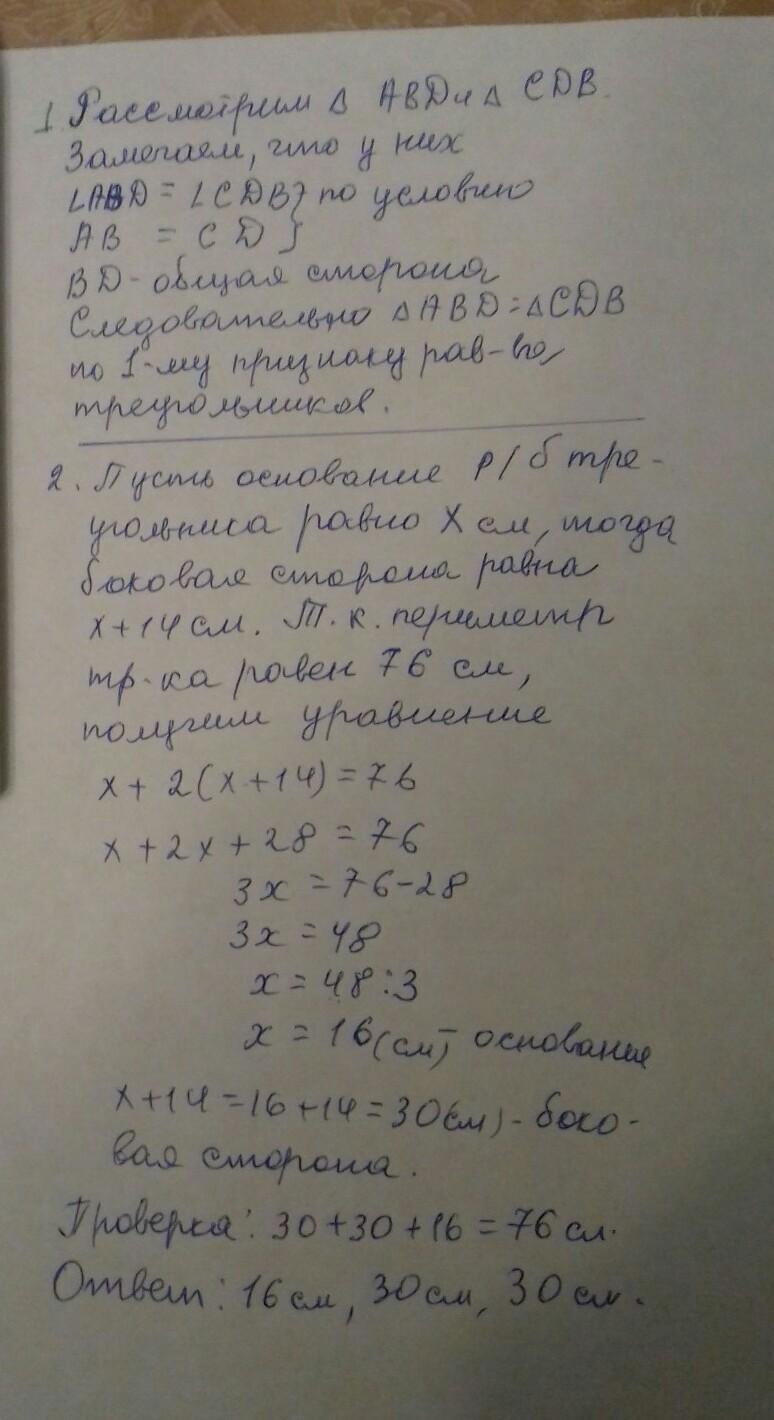 1. Рассмотрим Δ ABD и Δ CDB.
Замечаем, что у них
∠ABD = ∠CDB } по условию
AB = CD }
BD - общая сторона
Следовательно ΔABD = ΔCDB
по 1-му признаку рав-ва
треугольников.
2. Пусть основание р/б тре-
угольника равно X см, тогда
боковая сторона равна
x+14 см. Т.к. периметр
тр-ка равен 76 см,
получим уравнение
x + 2(x+14) = 76
x + 2x + 28 = 76
3x = 76-28
3x = 48
x = 48:3
x = 16 (см) - основание
x+14 = 16+14 = 30(см) - боко-
вая сторона.
Проверка: 30+30+16 = 76 см.
Ответ: 16 см, 30 см, 30 см.